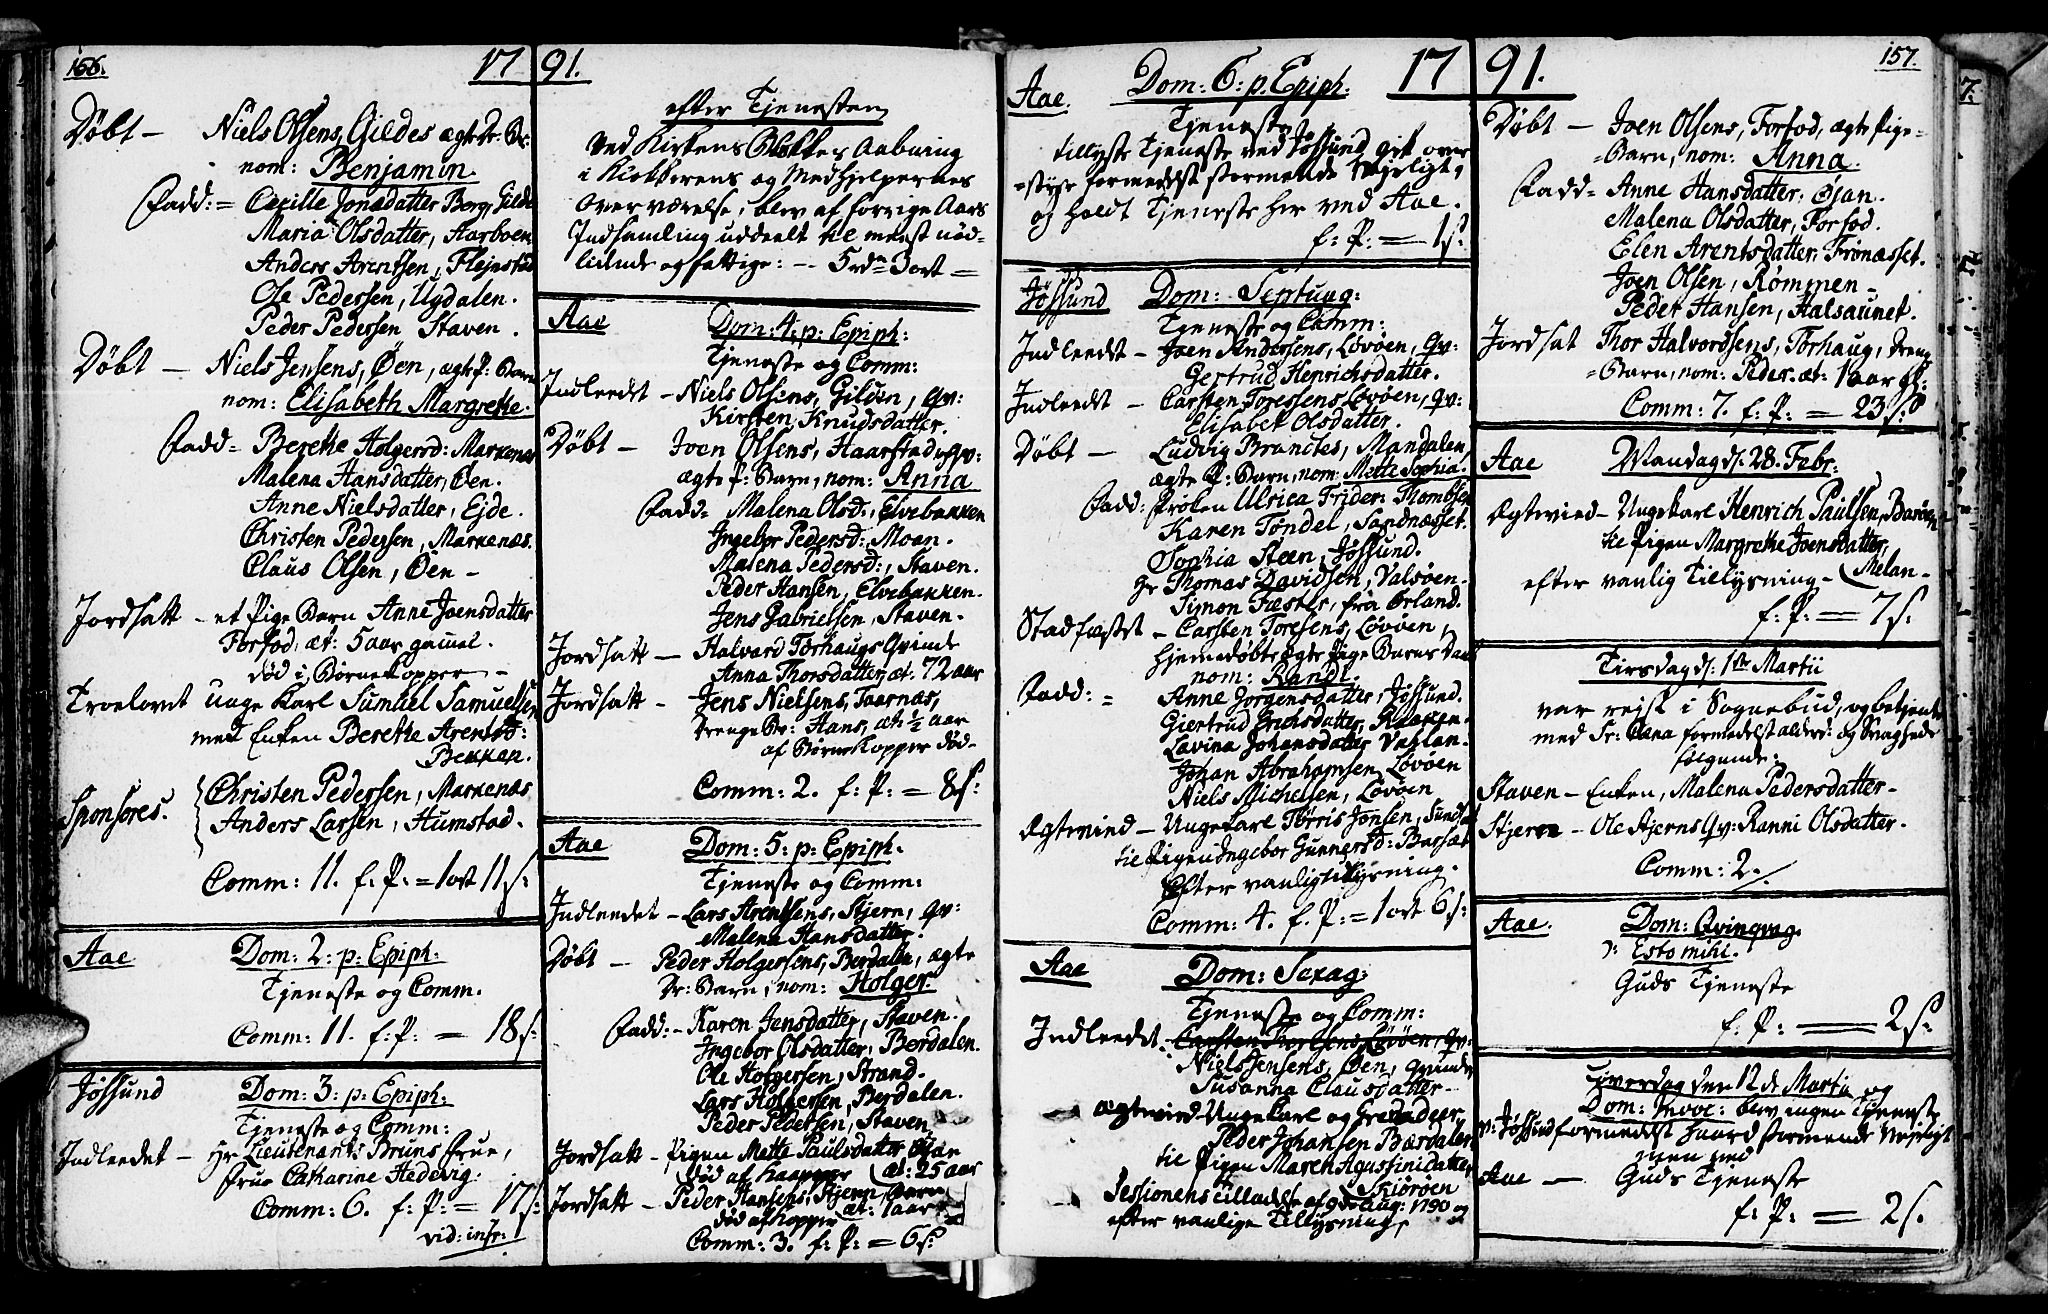 156.
17
91.
Døbt — Niels Olsens, Gildes ægte Dr: Br:
nom: Benjamin.
Fadd: = Cecille Jonsdatter Borg, Gilde
Maria Olsdatter, Aarboen
Anders Arentsen, Flejnstad
Ole Pedersen, Ugdalen.
Peder Pedersen Staven.
Døbt — Niels Jensens, Øen, ægte P: Barn
nom: Elisabeth Margrethe.
Fadd = Berethe Holgersd: Markenæs
Malena Hansdatter, Øen.
Anne Nielsdatter, Ejde.
Christen Pedersen, Markenæs.
Claus Olsen, Øen —
Jordsatt — et Pige Barn Anne Joensdatter
Forfod, æt: 5 aar gammel.
død i Børne Kopper —
Troelovet unge Karl Samuel Samuelsen
med Enken Berethe Arentsd:
Bekken.
Sponsores. Christen Pedersen, Markenæs
Anders Larsen, Humstad.
Comm: 11. f: P: = 1 ort 11 s:
Aae Dom: 2: p: Epiph:
Tjeneste og Comm.
Comm: 11. f: P: = 18 s:
Jøssund Dom: 3: p: Epiph:
Tjeneste og Comm:
Indleedet — Hr Lieutenant Bruns frue,
frue Catharine Hedevig.
Comm: 6. f: P: = 17 s:
vid: infr:
efter Tjenesten
ved Kirkens Blokkes Aabning
i Klokkerens og Medhjelpernes
Overværelse, blev af forrige Aars
Indsamling uddeelt til meest nød-
lidende og fattige: — 5 rdr 3 ort —
Aae Dom: 4: p: Epiph:
Tjeneste og Comm:
Indleedt — Niels Olsens, Gilden, Qv:
Kirsten Knudsdatter.
Døbt — Joen Olsens, Haarstad
ægte P: Barn, nom: Anna
Fadd = Malena Olsd:, Elvebakken
Ingebor Pedersd: Moan.
Malena Pedersd:, Staven.
Peder Hansen, Elvebakken.
Jens Gabrielsen, Staven.
Jordsatt — Halvard Torhaugs Qvinde
Anna Thorsdatter, æt. 72 aar
Jordsatt — Jens Nielsens, Taarnæs,
Drenge Br: Hans, æt: ½ aar
af Børne Kopper død —
Comm: 2. f: P: = 8 s:
Aae Dom: 5: p: Epiph.
Tjeneste og Comm:
Indleedet — Lars Arentsens, Stjern, Qv:
Malena Hansdatter.
Døbt — Peder Holgersens, Berdalen, ægte
Dr: Barn, nom: Holger.
Fadd: — Karen Jensdatter, Staven.
Ingebor Olsdatter, Berdalen.
Ole Holgersen, Strand.
Lars Holgersen, Berdalen.
Peder Pedersen, Staven
Jordsatt — Pigen Mette Paulsdatter
død af æt: 25 aar
Jordsatt — Peder Hansens, Stjern, Barn
død af Kopper æt: 1 aar
Comm: 3. f: P: = 6 s:
Aae. Dom: 6: p. Epiph. 17
91.
157.
Tjeneste
tillyste Tjeneste ved Jøssund gik over
=styr formedelst stormende Vejrligt,
og holdt Tjeneste her ved Aae.
f: P: = 1 s:
Jøssund Dom: Septuag:
Tjeneste og Comm:
Indleedt — Joen Anderssens, Løvøen, Qv:
Gertrud Henrichsdatter.
Indleedt — Carsten Toressens Løvøen, Qv:
Elisabet Olsdatter.
Døbt — Ludvig Brandtes, Mandalen,
ægte P: Barn, nom: Mette Sophia.
Fadd: Frøken Ulrica Frider: Thombsen
Karen Tøndel, Sandnæsset.
Sophia Steen, Jøssund.
Hr Thomas Davidsen, Valsøen.
Simon Fæster, fra Ørland.
Stadfæstet — Carsten Toresens, Løvøen,
hjemmedøbte ægte Pige Barns Daab
nom: Randi.
Fadd: = Anne Jørgensdatter, Jøssund.
Giertrud Erichsdatter,
Lavina Johansdatter
Johan Abrahamsen, Løvøen
Niels Michelsen, Løvøen
Ægtevied — Ungekarl Tørris Jonsen, Sund
til Pigen Ingebor Gunnersd: Bessat
efter vanlig tillysning.
Comm: 4. f. P: = 1 ort 6 s:
Aae Dom: Sexag:
Tjeneste og Comm:
Indleedet. Carsten Toresens Løvøen, Qv:
Niels Jensens, Øen, Qvinde
Susanna Clausdatter —
Ægtevied Ungekarl og Gredadeer
Peder Johansen Bærdalen
til Pigen Maren Agustinidatter
Skiørøen
Sessionens tilladelse af 9de Aug: 1790 og
efter vanlige Tillysning,
Døbt — Joen Olsens, Forfod, ægte Pige=
=Barn, nom: Anna.
Fadd = Anne Hansdatter, Øjan.
Malena Olsdatter, Forfod.
Elen Arentsdatter, Frønæsset.
Joen Olsen, Rømmen —
Peder Hansen, Halsaunet.
Jordsat Thor Halvordsens, Torhaug, Dreng
=Barn, nom: Peder. æt: 1 aar gl:
Comm: 7. f: P: = 23 s:
Aae Mandag d: 28. Febr:
Ægtevied — Ungekarl Henrich Paulsen, Barøen
til Pigen Margrethe Joensdatter,
efter vanlig Tillysning — Melan —
f: P: = 7 s.
Tirsdag d: 1ste Martii
var rejst i Sognebud, og betjente
med Sr: Cæna formedelst alderd: og Svaghed
følgende:
Staven — Enken, Malena Pedersdatter —
Stjeren — Ole Stjerns Qv: Ranni Olsdatter.
Comm: 2.
Aae. Dom: Qvinqvag.
ɔ: Estomihi.
Guds Tjeneste
f: P: — 2 s:
Løverdag den 12 d. Martii og
Dom: Invoc: blev ingen Tjeneste
v: Jøssund formedelst haard stormende Vejrligt
men ved
Aae — Guds Tjeneste
f: P: = 2 s.